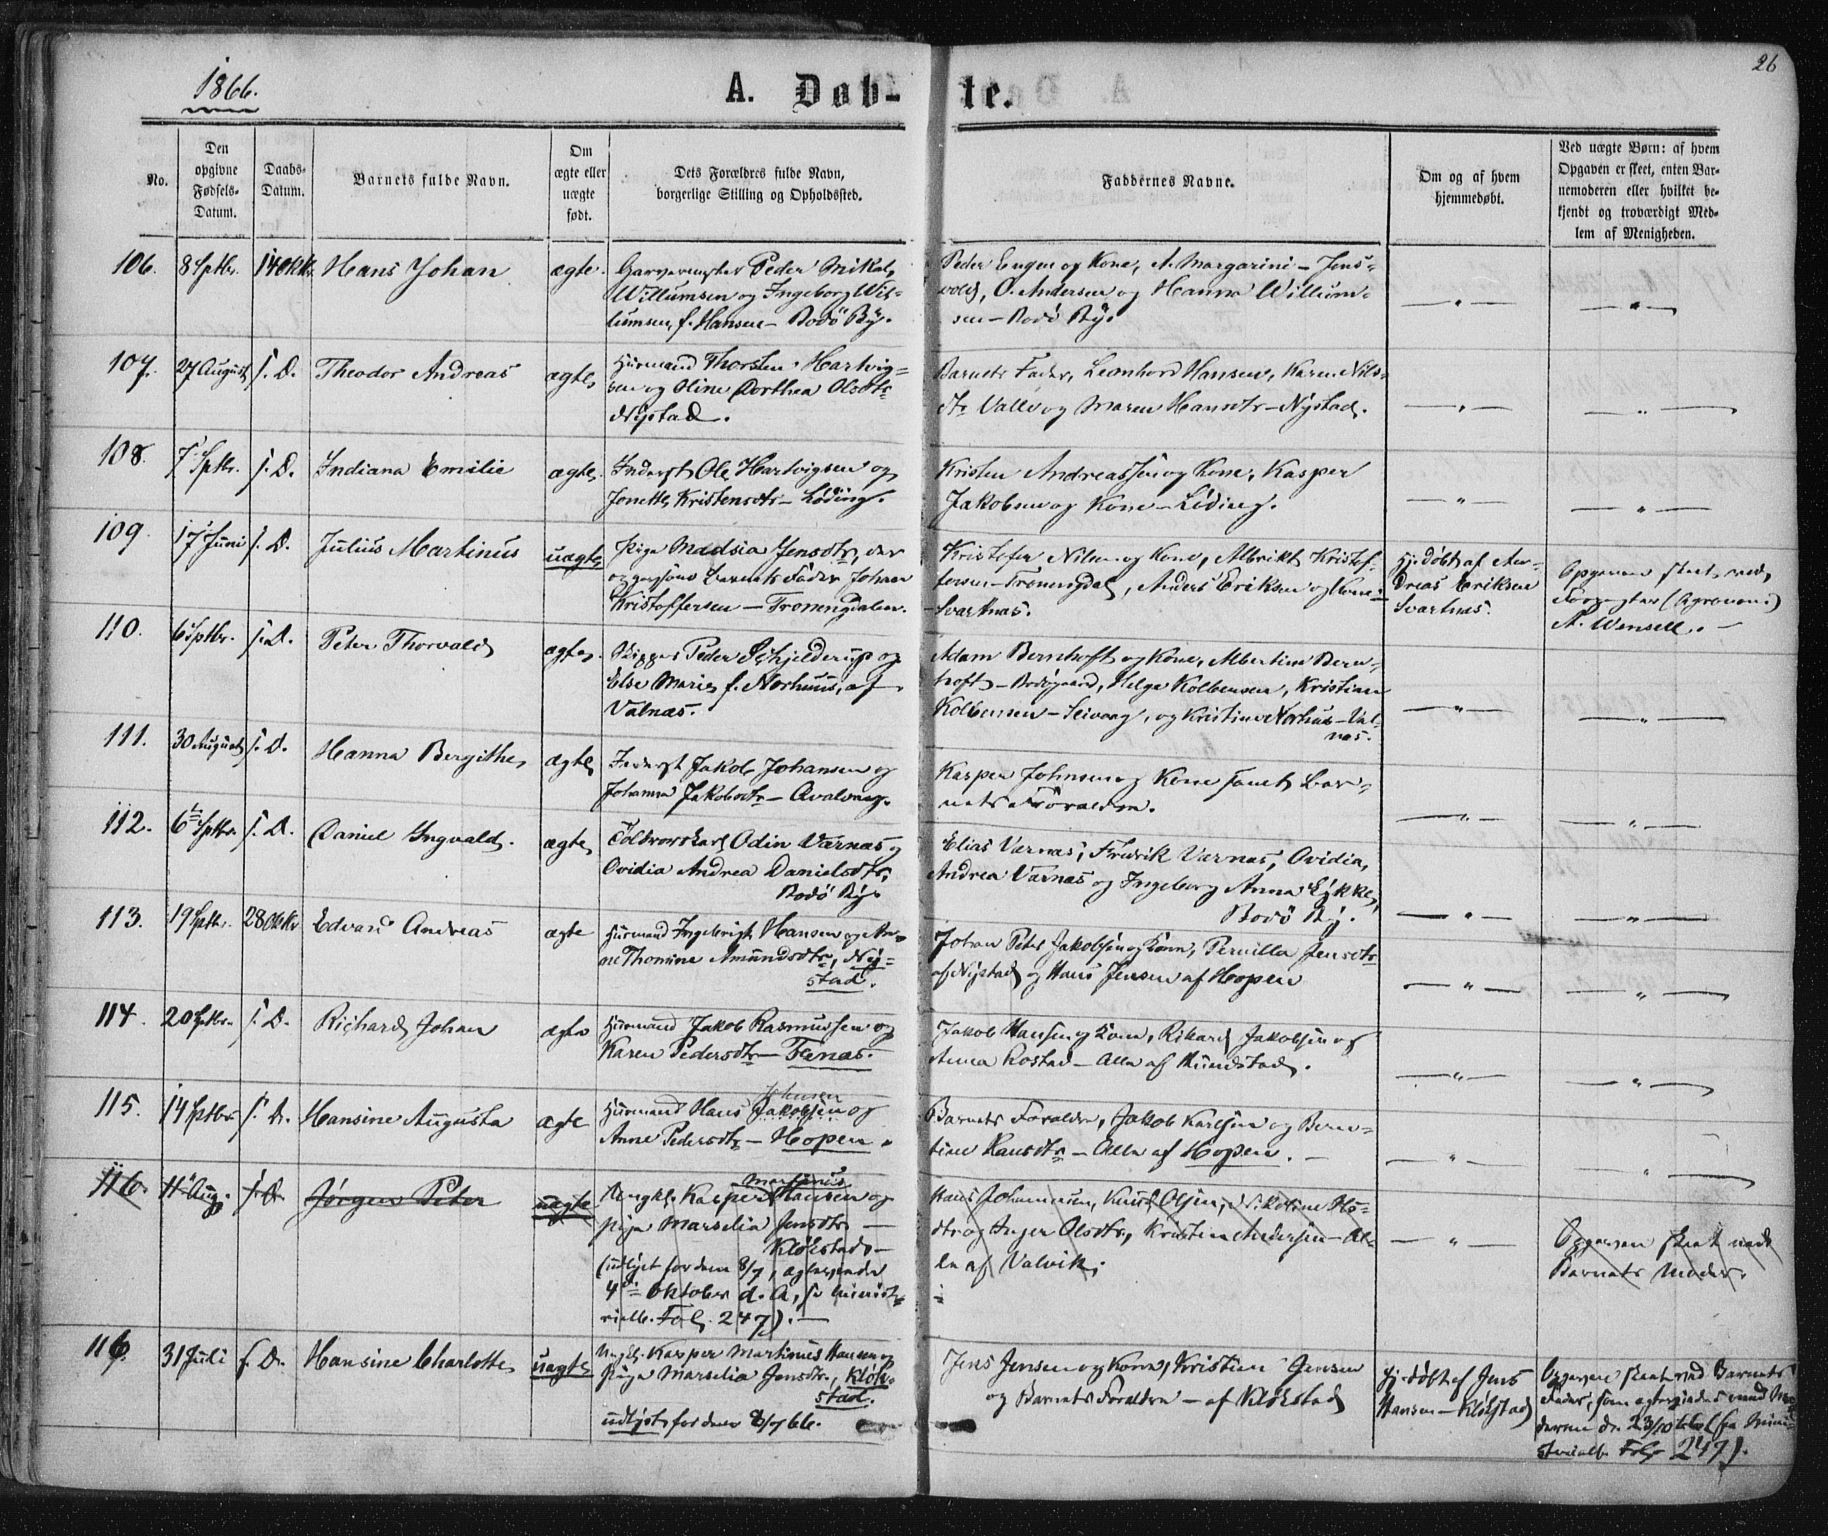 26
1866.
A. Døb-
te.
No.
Den
opgivne
Fødsels-
Datum.
Daabs-
Datum.
Barnets fulde Navn.
Om
ægte eller
uægte
født.
Dets Forældres fulde Navn,
borgerlige Stilling og Opholdssted.
Faddernes Navne.
Om og af hvem
hjemmedøbt.
Ved uægte Børn: af hvem
Opgaven er skeet, enten Bar-
nemoderen eller hvilket be-
kjendt og troværdigt Med-
lem af Menigheden.
106. 8 Sptbr. 14 Oktbr. Hans Johan ægte. Garvermester Peder Mikal
Willumsen og Ingeborg Wil-
lumsen, f. Hansen – Bodö By.
Peder Engen og Kone, A. Margarini – Jens-
vold, O. Andersen og Hanna Willum-
sen – Bodö By.
— " —
— " —
107. 27 August s. D. Theodor Andreas ægte Huusmand Thorsten Hartvig-
sen og Oline Dorthea Olsdtr
Nystad.
Barnets Fader, Leonhard Hansen, Karen Nils-
dtr Valle og Maren Hansdtr – Nystad.
— " —
— " —
108. 7 Sptbr. s. D. Indiana Emilie ægte. Inderst Ole Hartvigsen og
Jonette Kristensdtr – Löding.
Kristen Andreassen og Kone, Kasper
Jakobsen og Kone – Löding.
— " —
— " —
109. 17 Juni s. D. Julius Martinus uægte Pige Madsia Jensdtr, der
opgav som Barnets Fader Johan
Kristoffersen – Tronengdalen.
Kristofer Nilsen og Kone, Albrikt Kristof-
fersen – Tronengdal, Anders Eriksen og Kone –
Svartnas.
Hj. døbt af An-
dreas Eriksen
Svartnas.
Opgaven skeet ved
Forvalter (Agronom)
A. Wensell. –
110. 6 Sptbr. s. D. Peter Thorvald ægte. Skipper Peder Schjelderup og
Else Marie f. Norhuus, af
Valnæs.
Adam Bernhoft og Kone, Albertine Bern-
hoft – Bodøgaard, Helge Kolbensen, Kristian
Kolbensen – Seivaag, og Kristine Norhus – Val-
nas.
— " —
— " —
111. 30 August s. D. Hanna Bergithe ægte Inderst Jakob Johansen og
Johanna Jakobsdtr – Kvalvaag.
Kasper Johnsen og Kone samt Bar-
nets Foraldre.
— " —
— " —
112. 6te Sptbr. s. D. Daniel Ingvald. ægte Toldroerskarl Odin Varnas og
Ovidia Andrea Danielsdtr,
Bodö By.
Elias Varnas, Fredrik Varnas, Ovidia,
Andrea Varnas og Ingeborg Anna Lykke,
Bodö By.
— " —
— " —
113. 19 Sptbr. 28 Oktbr Edvard Andreas ægte Huusmand Ingebrigt Hansen og An-
ne Thomine Amundsdtr, Ny-
stad.
Johan Peter Jakobsen og Kone, Pernilla Jensdtr
af Nystad og Hans Jensen af Hopen
— " —
— " —
114. 20 Sptbr. s. D. Richard Johan ægte Huusmand Jakob Rasmussen og
Karen Pedersdtr – Fenas. –
Jakob Hansen og Kone, Rikard Jakobsen og
Anna Rostad – Alle af Rundstad.
— " —
— " —
115. 14 Sptbr s. D. Hansine Augusta ægte Huusmand Hans Jakobsen og
Johnsen
Anne Pedersdtr – Hopen.
Barnets Foraldre, Jakob Karlsen og Bern-
tine Hansdtr – Alle af Hopen. –
— " —
— " —
116. 11 Aug. s. D. Jørgen Peter uægte Ungkl. Kasper Hansen og
Martinus
Pige Marselia Jensdtr –
Klökstad –
(udlyst for dem 8/7, agtegivede
4de Oktober d. A, se Minist-
rielle. Fol. 247). –
Hans Johannesen, Knud Olsen, Nikoline Ols-
dtr og Inger Olsdtr, Kristine Andersen – Al-
le af Valvik.
— " —
Opgaven skeet ved
Barnets Moder.
116. 31 Juli s. D. Hansine Charlotte uægte Ungkl. Kasper Martinus Hansen og
Pige Marselia Jensdtr, Klök-
stad.
udlyst for dem 8/7 66.
Jens Jensen og Kone, Kristian Jensen
og Barnets Foraldre – af Klökstad
Hj. døbt af Jens
Hansen – Klökstad
Opgaven skeet ved Barnets
Fader, som agtegivedes med Mo-
deren d. 23/10 (se Mini-
sterialb. Folio 247).